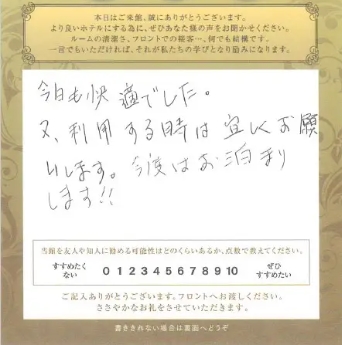 本日はご来館、誠にありがとうございます。
より良いホテルにする為に、ぜひあなた様の声をお聞かせください。
ルームの清潔さ、フロントでの接客…、何でも結構です。
一言でもいただければ、それが私たちの学びとなり励みになります。
今日も快適でした。
又、利用する時は宜しくお願
いします。今度はお泊まり
します!!
当館を友人や知人に勧める可能性はどのくらいあるか、点数で教えてください。
すすめたくない 0 1 2 3 4 5 6 7 8 9 10 ぜひすすめたい
ご記入ありがとうございます。フロントへお渡しください。
ささやかなお礼をさせていただきます。
書ききれない場合は裏面へどうぞ